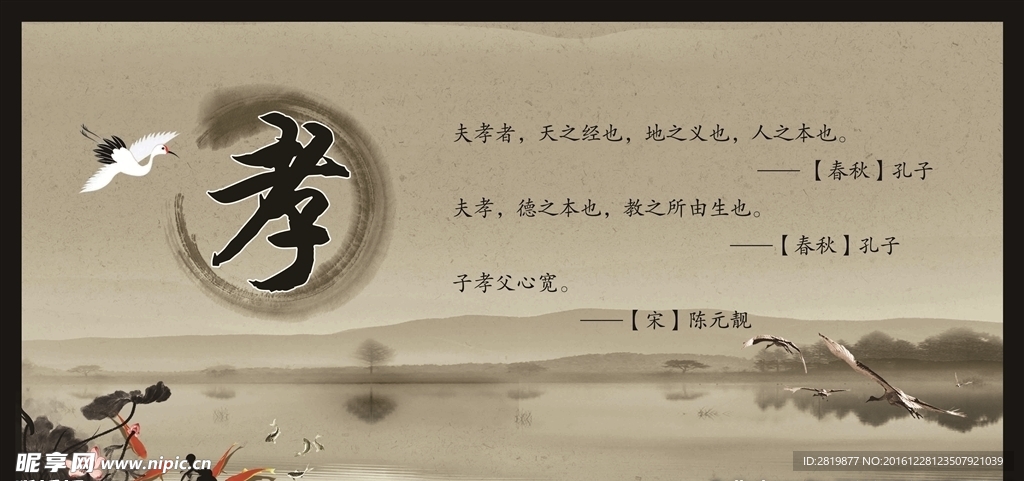 孝
夫孝者，天之经也，地之义也，人之本也。
——【春秋】孔子
夫孝，德之本也，教之所由生也。
——【春秋】孔子
子孝父心宽。
——【宋】陈元靓
昵享网 www.nipic.cn
ID:2819877 NO:20161228123507921039